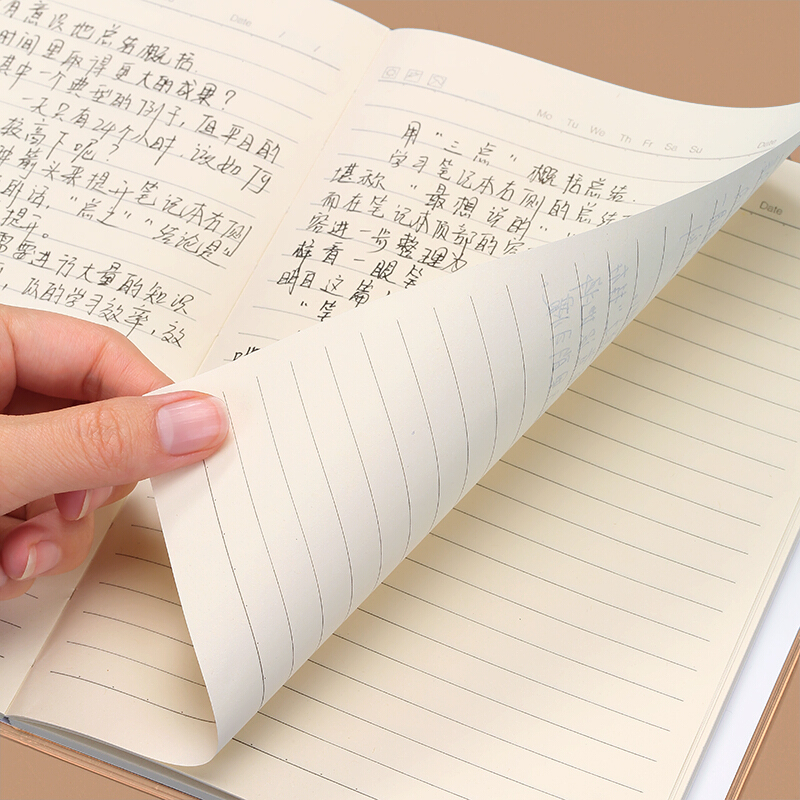 Date / /
有意识地总结概括
时间里取得更大的成果？
其中一个典型的例子，值平日的
一天只有24个小时，该如何
较高下呢？
箭头来提升笔记本右侧
的话，"点上""结论是"
提示。
需要进行大量的知识
，你的学习效率，效
Mo Tu We Th Fr Sa Su
Date
用"三点"概括总结。
学习笔记本右侧的总结
堪称"最想说的"
而在笔记本顶部的
容进一步整理为
样看一眼笔
明白这篇
"笔
Date